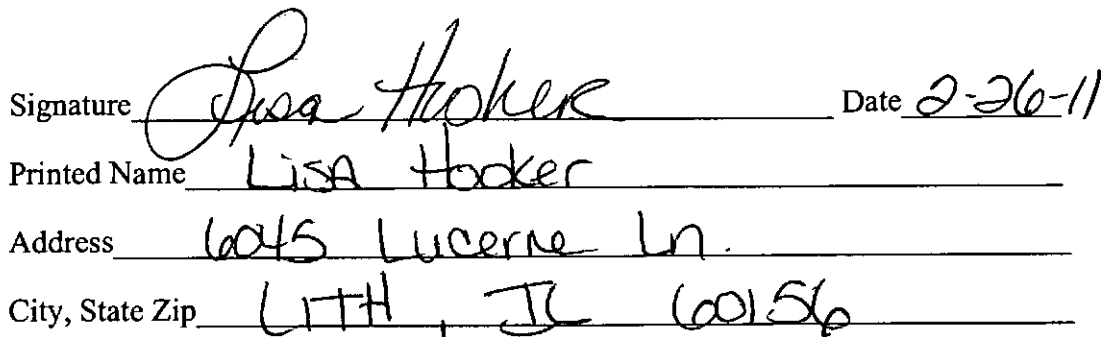 Signature Lisa Hooker Date 2-26-11
Printed Name LisA Hooker
Address 6045 Lucerne Ln.
City, State Zip LITH, IL 60156